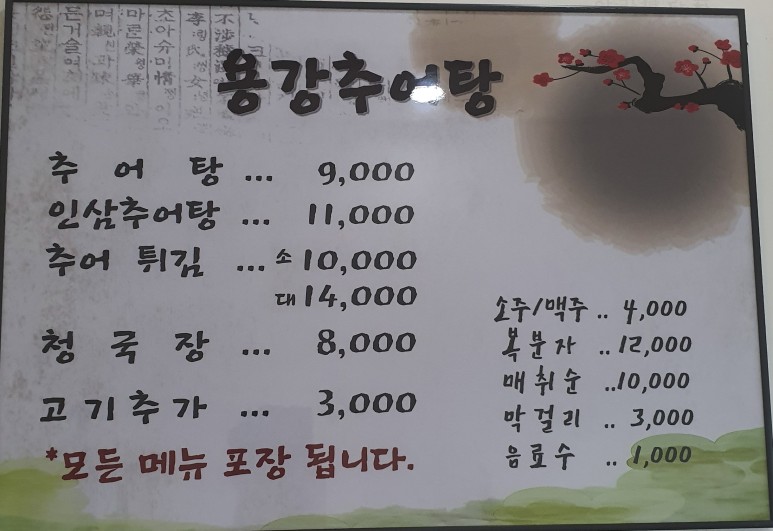 용강추어탕
추 어 탕 ... 9,000
인삼추어탕 ... 11,000
추어 튀김 ... 소 10,000
대 14,000
청 국 장 ... 8,000
고 기 추 가 ... 3,000
*모든 메뉴 포장 됩니다.
소주/맥주 .. 4,000
복분자 .. 12,000
매취순 ..10,000
막걸리 .. 3,000
음료수 .. 1,000